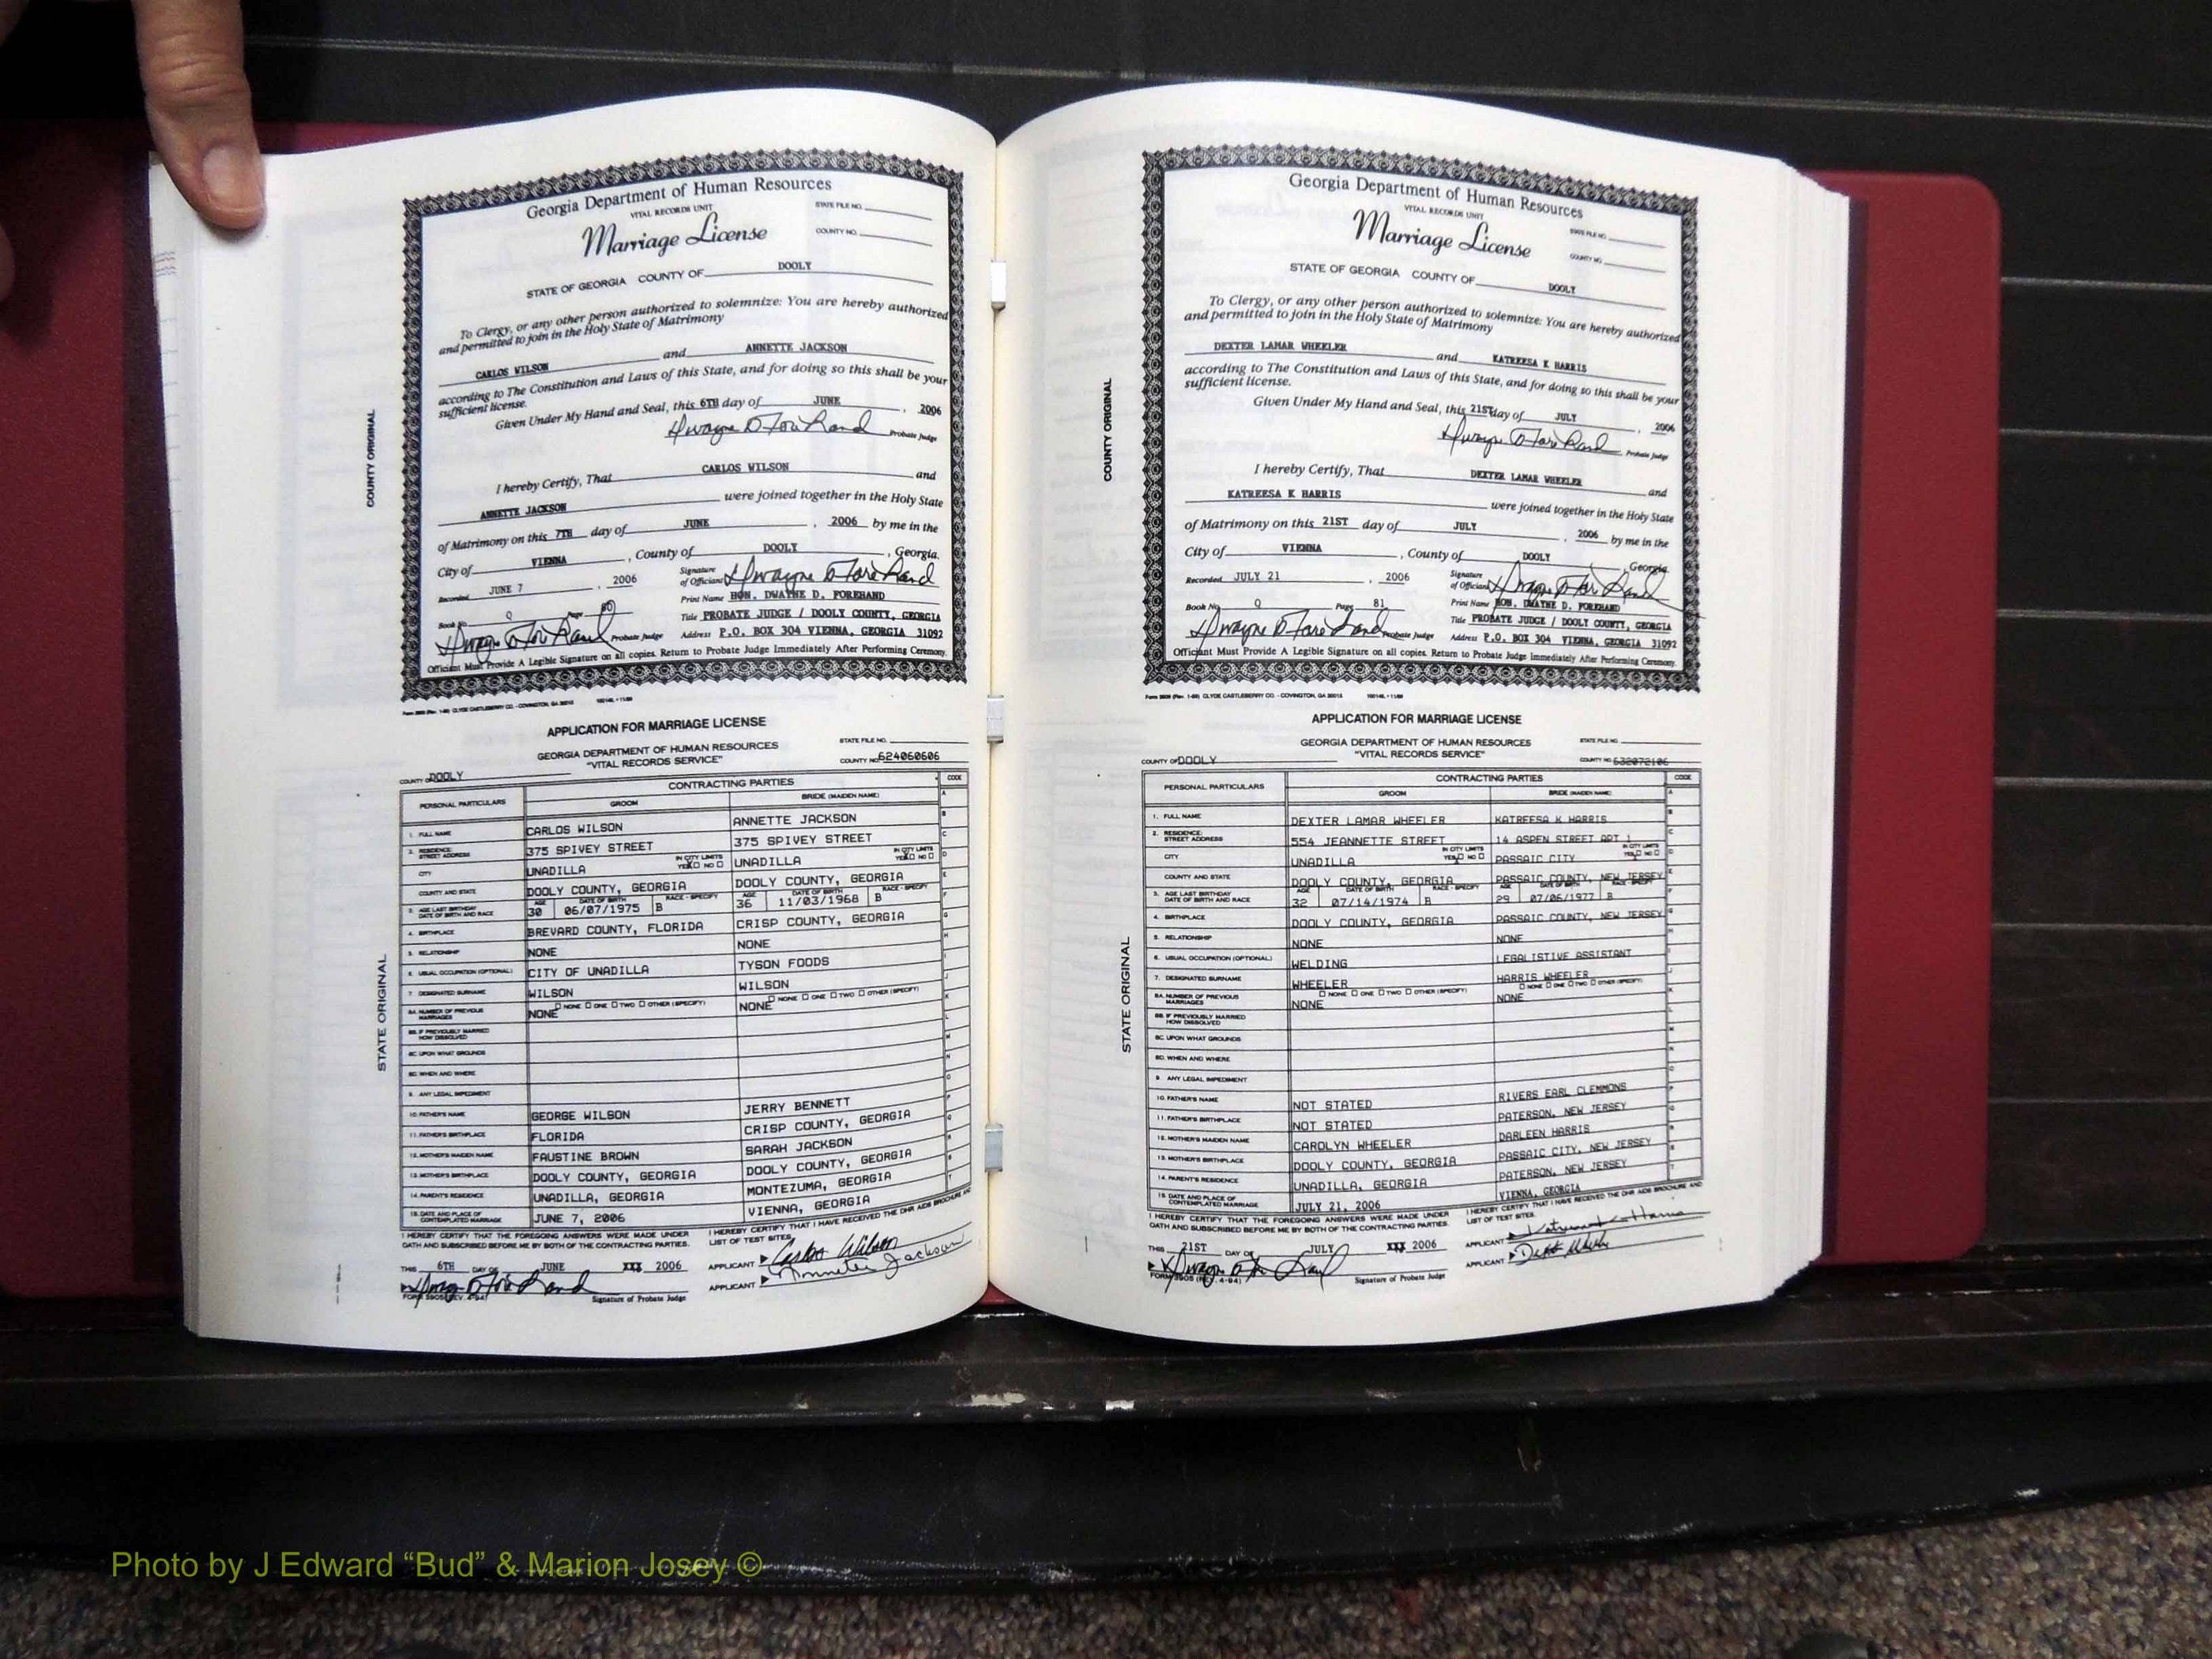 Georgia Department of Human Resources
VITAL RECORDS UNIT
STATE FILE NO.
Marriage License
COUNTY NO.
STATE OF GEORGIA COUNTY OF DOOLY
To Clergy, or any other person authorized to solemnize: You are hereby authorized
and permitted to join in the Holy State of Matrimony
CARLOS WILSON and ANNETTE JACKSON
according to The Constitution and Laws of this State, and for doing so this shall be your
sufficient license.
Given Under My Hand and Seal, this 6TH day of JUNE , 2006
Probate Judge
I hereby Certify, That CARLOS WILSON and
ANNETTE JACKSON were joined together in the Holy State
of Matrimony on this 7TH day of JUNE , 2006 by me in the
City of VIENNA , County of DOOLY , Georgia.
Recorded JUNE 7 , 2006
Signature of Officiant
Print Name HON. DWAYNE D. FOREHAND
Book No. Q Page 80
Title PROBATE JUDGE / DOOLY COUNTY, GEORGIA
Probate Judge Address P.O. BOX 304 VIENNA, GEORGIA 31092
Officiant Must Provide A Legible Signature on all copies. Return to Probate Judge Immediately After Performing Ceremony.
COUNTY ORIGINAL
APPLICATION FOR MARRIAGE LICENSE
GEORGIA DEPARTMENT OF HUMAN RESOURCES
"VITAL RECORDS SERVICE"
STATE FILE NO.
COUNTY OF DOOLY COUNTY NO. 624060606
CONTRACTING PARTIES CODE
PERSONAL PARTICULARS GROOM BRIDE (MAIDEN NAME)
1. FULL NAME CARLOS WILSON ANNETTE JACKSON
2. RESIDENCE: STREET ADDRESS 375 SPIVEY STREET 375 SPIVEY STREET
CITY UNADILLA IN CITY LIMITS YES NO UNADILLA IN CITY LIMITS YES NO
COUNTY AND STATE DOOLY COUNTY, GEORGIA DOOLY COUNTY, GEORGIA
3. AGE LAST BIRTHDAY DATE OF BIRTH AND RACE AGE 30 DATE OF BIRTH 06/07/1975 RACE - SPECIFY B AGE 36 DATE OF BIRTH 11/03/1968 RACE - SPECIFY B
4. BIRTHPLACE BREVARD COUNTY, FLORIDA CRISP COUNTY, GEORGIA
5. RELATIONSHIP NONE NONE
6. USUAL OCCUPATION (OPTIONAL) CITY OF UNADILLA TYSON FOODS
7. DESIGNATED SURNAME WILSON WILSON
8A. NUMBER OF PREVIOUS MARRIAGES NONE NONE ONE TWO OTHER (SPECIFY) NONE NONE ONE TWO OTHER (SPECIFY)
8B. IF PREVIOUSLY MARRIED HOW DISSOLVED
8C. UPON WHAT GROUNDS
8D. WHEN AND WHERE
9. ANY LEGAL IMPEDIMENT
10. FATHER'S NAME GEORGE WILSON JERRY BENNETT
11. FATHER'S BIRTHPLACE FLORIDA CRISP COUNTY, GEORGIA
12. MOTHER'S MAIDEN NAME FAUSTINE BROWN SARAH JACKSON
13. MOTHER'S BIRTHPLACE DOOLY COUNTY, GEORGIA DOOLY COUNTY, GEORGIA
14. PARENT'S RESIDENCE UNADILLA, GEORGIA MONTEZUMA, GEORGIA
15. DATE AND PLACE OF CONTEMPLATED MARRIAGE JUNE 7, 2006 VIENNA, GEORGIA
I HEREBY CERTIFY THAT THE FOREGOING ANSWERS WERE MADE UNDER
OATH AND SUBSCRIBED BEFORE ME BY BOTH OF THE CONTRACTING PARTIES.
I HEREBY CERTIFY THAT I HAVE RECEIVED THE DHR AIDS BROCHURE AND
LIST OF TEST SITES.
THIS 6TH DAY OF JUNE XXX 2006
APPLICANT Carlos Wilson
APPLICANT Annette Jackson
FORM 3905 (REV. 4-94) Signature of Probate Judge
STATE ORIGINAL
Georgia Department of Human Resources
VITAL RECORDS UNIT
STATE FILE NO.
Marriage License
COUNTY NO.
STATE OF GEORGIA COUNTY OF DOOLY
To Clergy, or any other person authorized to solemnize: You are hereby authorized
and permitted to join in the Holy State of Matrimony
DEXTER LAMAR WHEELER and KATREESA K HARRIS
according to The Constitution and Laws of this State, and for doing so this shall be your
sufficient license.
Given Under My Hand and Seal, this 21ST day of JULY , 2006
Probate Judge
I hereby Certify, That DEXTER LAMAR WHEELER and
KATREESA K HARRIS were joined together in the Holy State
of Matrimony on this 21ST day of JULY , 2006 by me in the
City of VIENNA , County of DOOLY , Georgia.
Recorded JULY 21 , 2006
Signature of Officiant
Print Name HON. DWAYNE D. FOREHAND
Book No. Q Page 81
Title PROBATE JUDGE / DOOLY COUNTY, GEORGIA
Probate Judge Address P.O. BOX 304 VIENNA, GEORGIA 31092
Officiant Must Provide A Legible Signature on all copies. Return to Probate Judge Immediately After Performing Ceremony.
COUNTY ORIGINAL
APPLICATION FOR MARRIAGE LICENSE
GEORGIA DEPARTMENT OF HUMAN RESOURCES
"VITAL RECORDS SERVICE"
STATE FILE NO.
COUNTY OF DOOLY COUNTY NO. 632072106
CONTRACTING PARTIES CODE
PERSONAL PARTICULARS GROOM BRIDE (MAIDEN NAME)
1. FULL NAME DEXTER LAMAR WHEELER KATREESA K HARRIS
2. RESIDENCE: STREET ADDRESS 554 JEANNETTE STREET 14 ASPEN STREET APT 1
CITY UNADILLA IN CITY LIMITS YES NO PASSAIC CITY IN CITY LIMITS YES NO
COUNTY AND STATE DOOLY COUNTY, GEORGIA PASSAIC COUNTY, NEW JERSEY
3. AGE LAST BIRTHDAY DATE OF BIRTH AND RACE AGE 32 DATE OF BIRTH 07/14/1974 RACE - SPECIFY B AGE 29 DATE OF BIRTH 07/06/1977 B
4. BIRTHPLACE DOOLY COUNTY, GEORGIA PASSAIC COUNTY, NEW JERSEY
5. RELATIONSHIP NONE NONE
6. USUAL OCCUPATION (OPTIONAL) WELDING LEGALISTIVE ASSISTANT
7. DESIGNATED SURNAME WHEELER HARRIS WHEELER
8A. NUMBER OF PREVIOUS MARRIAGES NONE NONE ONE TWO OTHER (SPECIFY) NONE NONE ONE TWO OTHER (SPECIFY)
8B. IF PREVIOUSLY MARRIED HOW DISSOLVED
8C. UPON WHAT GROUNDS
8D. WHEN AND WHERE
9. ANY LEGAL IMPEDIMENT
10. FATHER'S NAME NOT STATED RIVERS EARL CLEMMONS
11. FATHER'S BIRTHPLACE NOT STATED PATERSON, NEW JERSEY
12. MOTHER'S MAIDEN NAME CAROLYN WHEELER DARLEEN HARRIS
13. MOTHER'S BIRTHPLACE DOOLY COUNTY, GEORGIA PASSAIC CITY, NEW JERSEY
14. PARENT'S RESIDENCE UNADILLA, GEORGIA PATERSON, NEW JERSEY
15. DATE AND PLACE OF CONTEMPLATED MARRIAGE JULY 21, 2006 VIENNA, GEORGIA
I HEREBY CERTIFY THAT THE FOREGOING ANSWERS WERE MADE UNDER
OATH AND SUBSCRIBED BEFORE ME BY BOTH OF THE CONTRACTING PARTIES.
I HEREBY CERTIFY THAT I HAVE RECEIVED THE DHR AIDS BROCHURE AND
LIST OF TEST SITES.
THIS 21ST DAY OF JULY XXX 2006
APPLICANT
APPLICANT
FORM 3905 (REV. 4-94) Signature of Probate Judge
STATE ORIGINAL
Photo by J Edward “Bud” & Marion Josey ©